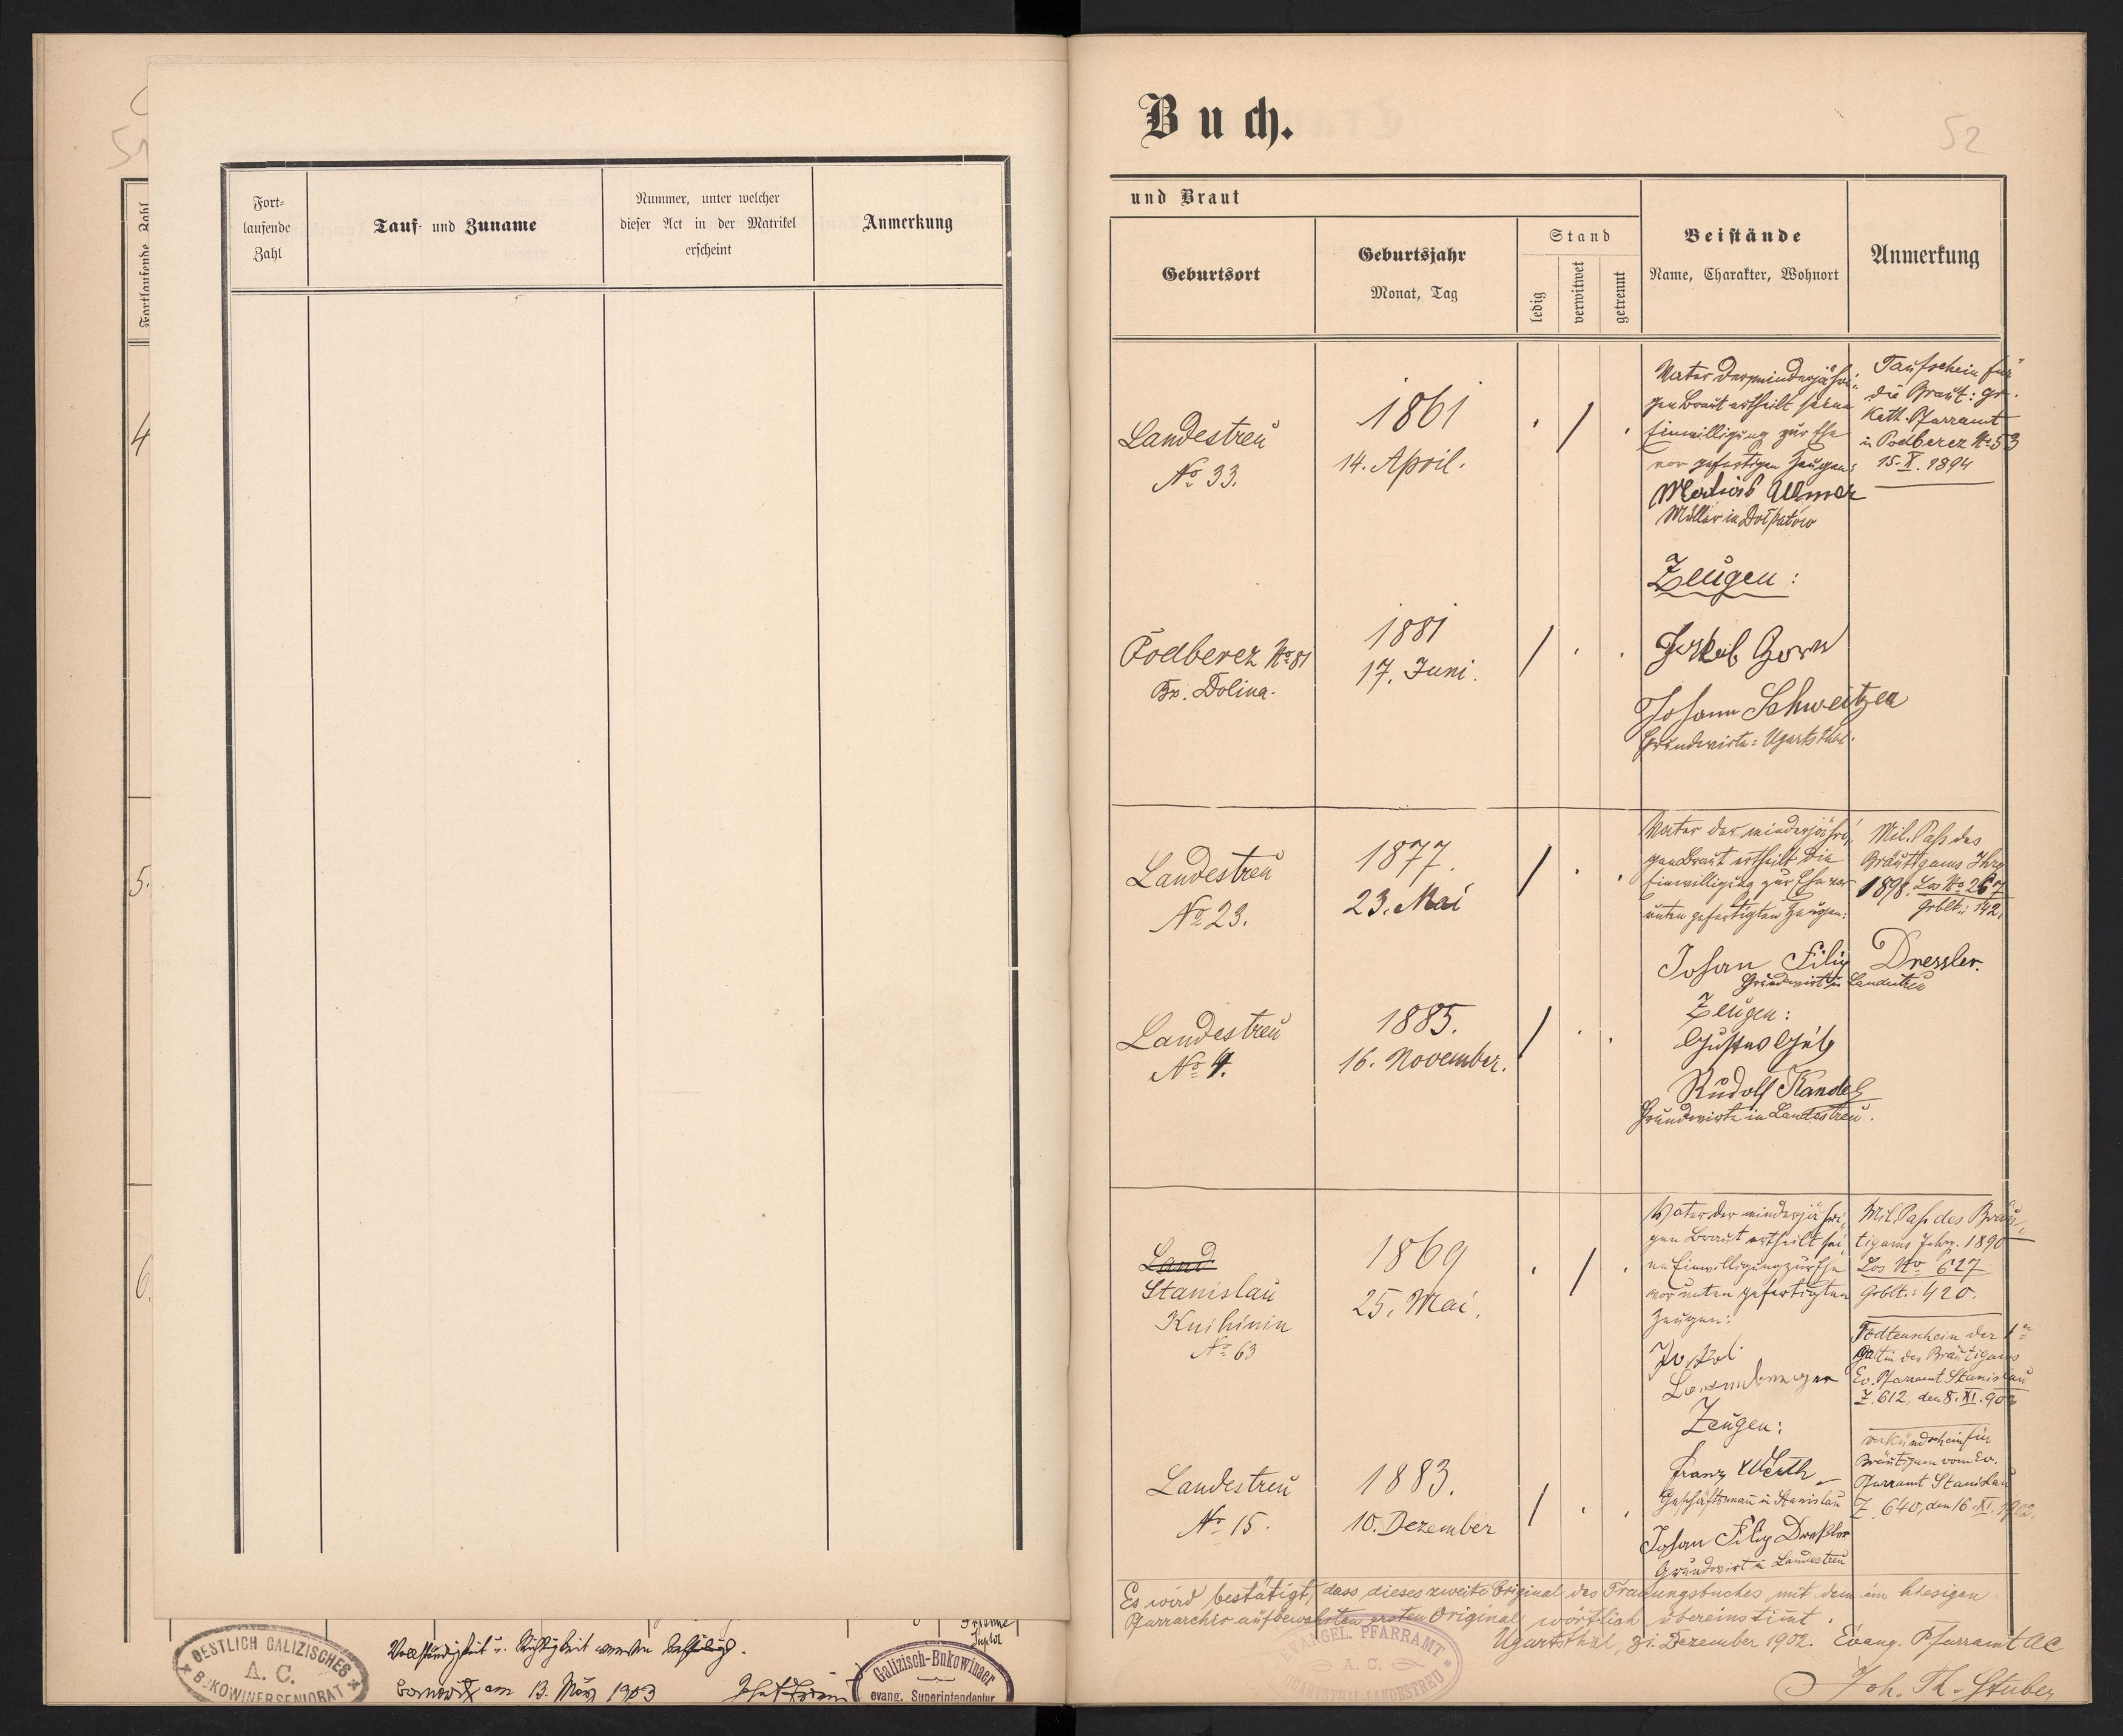 51
Fortlaufende Zahl
4
5.
6.
Fort-
laufende
Zahl
Tauf- und Zuname
Nummer, unter welcher
dieser Act in der Matrikel
erscheint
Anmerkung
OESTLICH GALIZISCHES
A. C.
BUKOWINERSENIORAT
Vollständigkeit u. Richtigkeit
am 13. März 1903
Galizisch-Bukowinaer
evang. Superintendentur
Buch.
52
und Braut
Geburtsort
Geburtsjahr
Monat, Tag
Stand
ledig
verwitwet
getrennt
Beistände
Name, Charakter, Wohnort
Anmerkung
Landestreu
No 33.
1861
14. April.
Vater der minderjähri-
gen Braut ertheilt seine
Einwilligung zur Ehe
vor gefertigten Zeugen:
Ullmer
Müller in
Taufschein für
die Braut: gr.
Kath. Pfarramt
in Podberez No 53
15. X. 1894
Zeugen:
Podberez No 81
Bz. Dolina.
1881
17. Juni.
Jakob Horn
Johann Schweitzer
Grundwirte: Ugartsthal.
Landestreu
No 23.
1877.
23. Mai
Vater der minderjähri-
gen Braut ertheilt die
Einwilligung zur Ehe vor
unten gefertigten Zeugen:
Mil. Paß des
Bräutigams Jhrg
1898. Los No 267
Grblt.: 142.
Johan Filip Dressler.
Grundwirt in Landestreu
Zeugen:
Landestreu
No 4.
1885.
16. November.
Gustav
Rudolf Kandel
Grundwirte in Landestreu.
Land.
Stanislau
Knihinin
No 63
1869
25. Mai.
Vater der minderjähri-
gen Braut ertheilt sei-
ne Einwilligung zur Ehe
vor unten gefertigten
Zeugen:
Mil. Paß des Bräu-
tigams Jahrg. 1890
Los No 627
Grblt.: 420.
Todtenschein der 1en
Gattin des Bräutigams
Ev. Pfarramt Stanislau
Z. 612, den 8. XI. 902
Zeugen:
Landestreu
No 15.
1883.
10. Dezember
Franz
Geschäftsmann in Stanislau
Johan Filip Dreßler
Grundwirt in Landestreu
Verkündschein für
Bräutigam vom Ev.
Pfarramt Stanislau
Z. 640, den 16. XI. 1902.
Es wird bestätigt, dass dieses zweite Original des Trauungsbuches mit dem im hiesigen
Pfarrarchiv aufbewahrten ersten Original wörtlich übereinstimt.
Ugartsthal, 31. Dezember 1902. Evang. Pfarramt AC
Joh. Th. Stuber
EVANGEL. PFARRAMT
A. C.
UGARTSTHAL-LANDESTREU